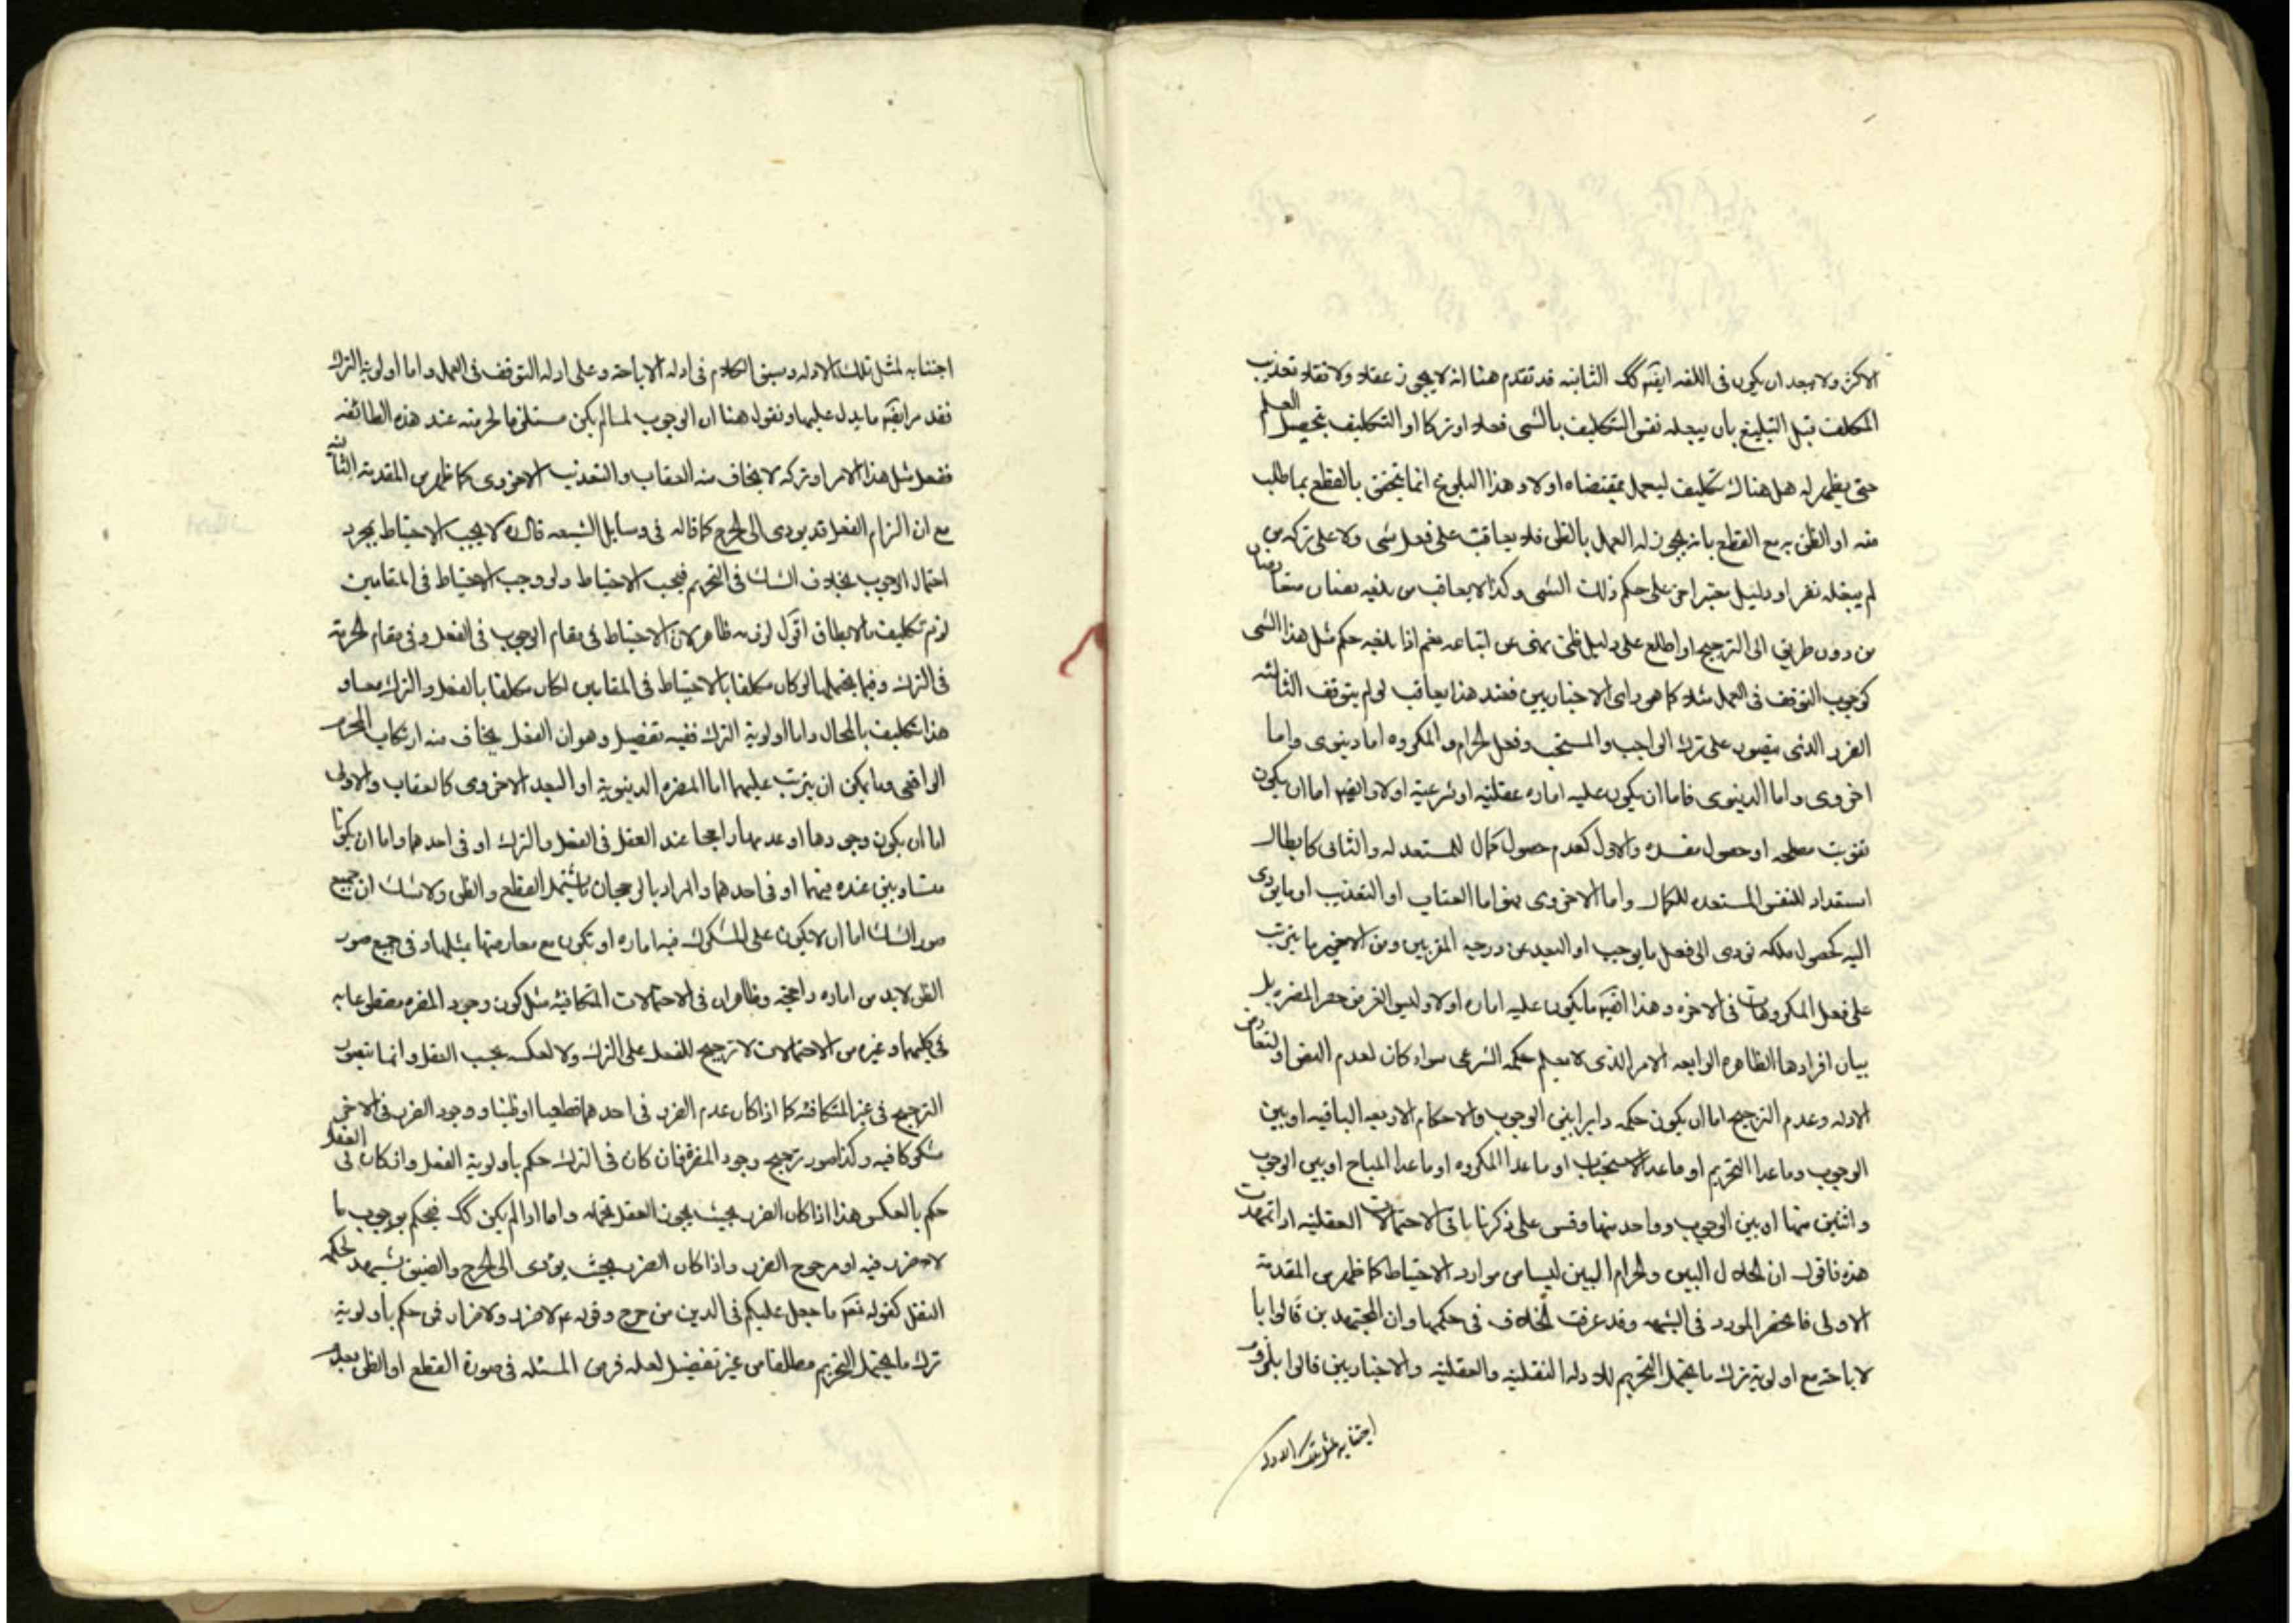 الاكثر ولا يبعد ان يكون فى اللغه ايضا كك الثانيه قد تقدم هنا انه لا يجوز عقلا ولا نقلا تعذيب
المكلف قبل التبليغ بان يبلغه نفس التكليف بالشى فعلا او تركا او التكليف بتحصيل العلم
حتى يظهر له هل هناك تكليف ليعمل بمقتضاه او لا وهذا البلوغ انما يتحقق بالقطع بما طلب
منه او الظن به مع القطع بانه يجوز له العمل بالظن فلا يعاقب على فعل شى ولا على تركه من
لم يبلغه نص او دليل معتبر اخر على حكم ذلك الشى وكذا لا يعاقب من بلغه نصان متعارضان
من دون طريق الى الترجيح او اطلع على دليل ظنى نهى عن اتباعه نعم اذا بلغه حكم مثل هذا الشى
كوجوب التوقف فى العمل مثلا كما هو راى الاخباريين فعند هذا يعاقب لو لم يتوقف الثالثه
الضرر الذى يتصور على ترك الواجب والمستحب وفعل الحرام والمكروه اما دنيوى واما
اخروى واما الدنيوى فاما ان يكون عليه اماره عقليه او شرعية او لا وايضا اما ان يكون
تفويت مصلحه او حصول مفسده والاول كعدم حصول كمال للمستعد له والثانى كابطال
استعداد للنفس المستعده للكمال واما الاخروى فهو اما العقاب او التعذيب او ما يودى
اليه كحصول ملكه تودى الى فعل ما يوجب او البعد عن درجه المقربين ومن الاخير ما يترتب
على فعل المكروهات فى الاخره وهذا ايضا ما يكون عليه اماره او لا وليس الغرض حصر المضره بل
بيان افرادها الظاهره الرابعه الامر الذى لا يعلم حكمه الشرعى سواء كان لعدم النص او لتعارض
الادله وعدم الترجيح اما ان يكون حكمه دايرا بين الوجوب والاحكام الاربعه الباقيه او بين
الوجوب وما عدا التحريم او ما عدا الاستحباب او ما عدا المكروه او ما عدا المباح او بين الوجوب
واثنين منها او بين الوجوب وواحد منها وقس على ذكرنا باقى الاحتمالات العقليه اذا تمهدت
هذه فاقول ان الحلال البين والحرام البين ليسا من موارد الاحتياط كما ظهر من المقدمة
الاولى فانحصر المورد فى الشبهه وقد عرفت الخلاف فى حكمها وان المجتهدين قالوا با
لاباحة مع اولوية ترك ما يحتمل التحريم للادله النقليه والعقليه والاخباريين قالوا بلزوم
اجتنابه لمثل تلك الادله
اجتنابه لمثل تلك الادله وسبق الكلام فى ادله الاباحة وعلى ادله التوقف فى العمل واما اولوية الترك
فقد مر ايضا ما يدل عليها ونقول هنا ان الوجوب لما لم يكن مستلزما لحرمته عند هذه الطائفه
ففعل مثل هذا الامر او تركه لا يخاف منه العقاب والتعذيب الاخروى كما ظهر من المقدمة الثانيه
مع ان الزام الفعل قد يودى الى الحرج كما قاله فى وسايل الشيعه قال لا يجب الاحتياط بمجرد
احتمال الوجوب بخلاف الشك فى التحريم فيجب الاحتياط ولو وجب الاحتياط فى المقامين
لزم تكليف ما لا يطاق اقول لزومه ظاهر لان الاحتياط فى مقام الوجوب فى الفعل وفى مقام الحرمة
فى الترك وفيما يحتملهما لو كان مكلفا بالاحتياط فى المقامين لكان مكلفا بالفعل والترك معا و
هذا تكليف بالمحال واما اولوية الترك ففيه تفصيل وهو ان الفعل يخاف منه ارتكاب المحرم
الواقعى وما يمكن ان يترتب عليهما اما المضره الدنيوية او البعد الاخروى كالعقاب والاولى
اما ان يكون وجودها او عدمها راجحا عند العقل فى الفعل والترك او فى احدهما واما ان يكونا
متساويين عنده فيهما او فى احدهما والمراد بالرجحان ما يشتمل القطع والظن ولا شك ان جميع
صور الشك اما ان لا يكون على المشكوك فيه اماره او تكون مع معارضتها بمثلها وفى جميع صور
الظن لا بد من اماره راجحه وظاهر ان فى الاحتمالات المتكافيه مثل كون وجود المضره مقطوعا به
فى كليهما وغيره من الاحتمالات لا ترجيح للفعل على الترك ولا لعكسه بحسب العقل وانما يتصور
الترجيح فى غير المتكافئه كما اذا كان عدم الضرر فى احدهما قطعيا او ظنيا ووجود الضرر فى الاخر
مشكوكا فيه وكذا صور ترجيح وجود المضره فان كان فى الترك حكم باولوية الفعل وان كان فى الفعل
حكم بالعكس هذا اذا كان الضرر بحيث يجوز العقل تحمله واما اذا لم يكن كك فيحكم بوجوب ما
لا ضرر فيه او مرجوح الضرر واذا كان الضرر بحيث يودى الى الحرج والضيق يشهد لحكمه
النقل كقوله تعه ما جعل عليكم فى الدين من حرج وقوله ع لا ضرر ولا ضرار فمن حكم باولوية
ترك ما يحتمل التحريم مطلقا من غير تفضيل لعله فرض المسئله فى صورة القطع او الظن بعدم